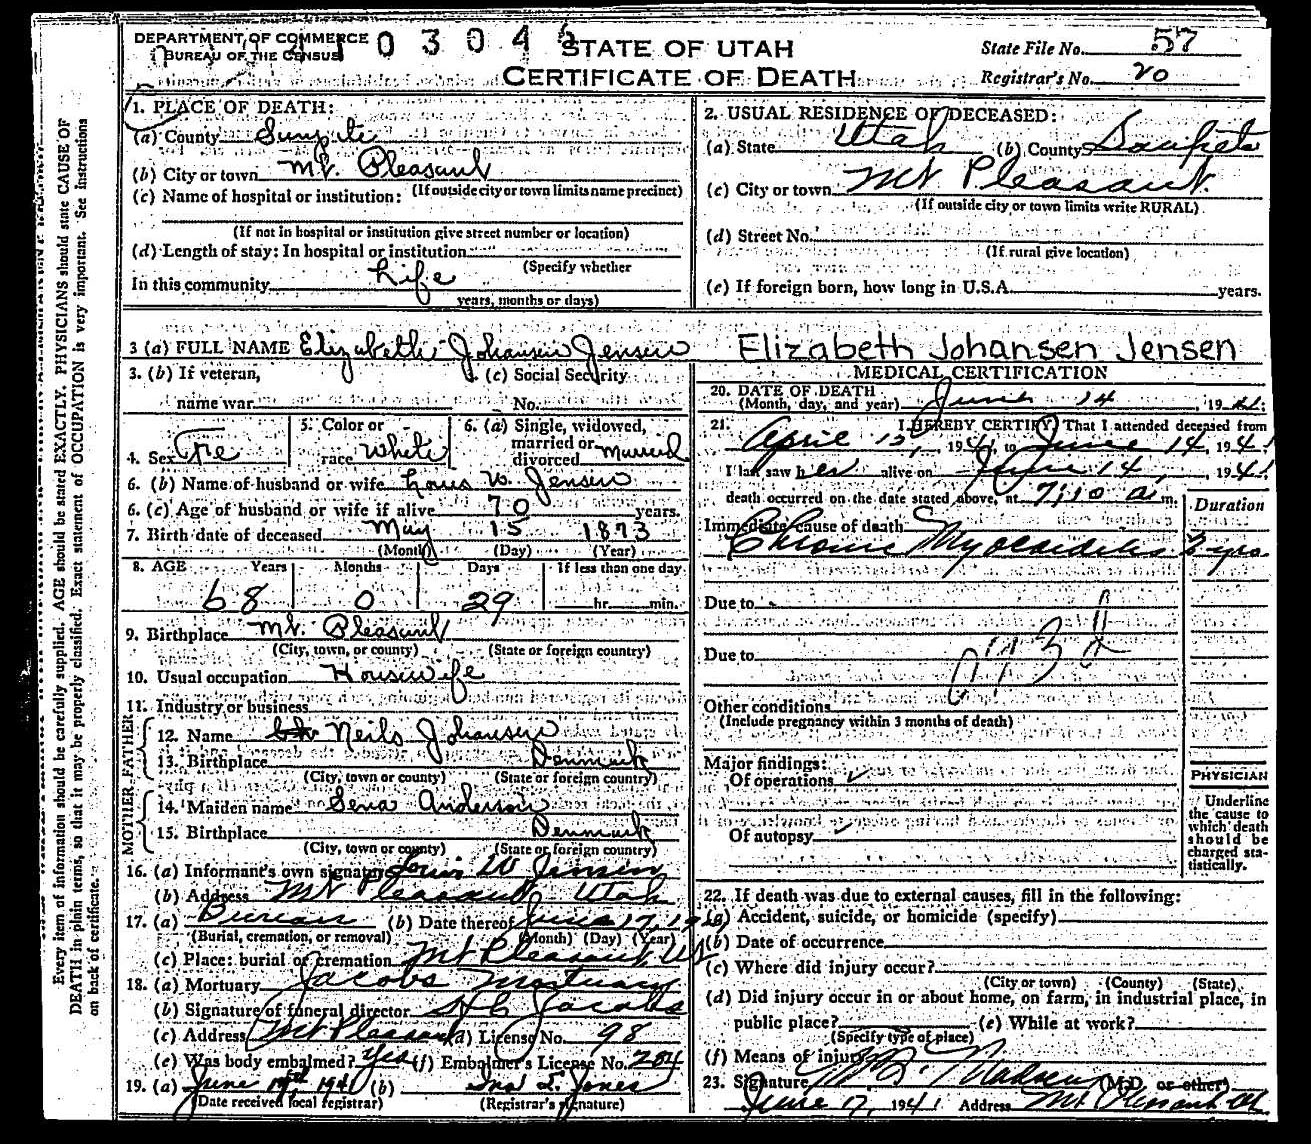 DEPARTMENT OF COMMERCE
BUREAU OF THE CENSUS
STATE OF UTAH
CERTIFICATE OF DEATH
State File No. 57
Registrar's No. 20
1. PLACE OF DEATH:
(a) County Sanpete
(b) City or town Mt. Pleasant
(If outside city or town limits name precinct)
(c) Name of hospital or institution:
(If not in hospital or institution give street number or location)
(d) Length of stay: In hospital or institution
(Specify whether
In this community Life
years, months or days)
2. USUAL RESIDENCE OF DECEASED:
(a) State Utah (b) County Sanpete
(c) City or town Mt Pleasant.
(If outside city or town limits write RURAL)
(d) Street No.
(If rural give location)
(e) If foreign born, how long in U.S.A. years.
3 (a) FULL NAME Elizabeth Johansen Jensen Elizabeth Johansen Jensen
3. (b) If veteran,
name war
(c) Social Security
No.
4. Sex Fe
5. Color or
race White
6. (a) Single, widowed,
married or
divorced Married
6. (b) Name of husband or wife Louis W. Jensen
6. (c) Age of husband or wife if alive 70 years.
7. Birth date of deceased May 15 1873
(Month) (Day) (Year)
8. AGE Years Months Days If less than one day
68 0 29 hr. min.
9. Birthplace Mt. Pleasant
(City, town, or county) (State or foreign country)
10. Usual occupation Housewife
11. Industry or business
FATHER
12. Name Neils Johansen
13. Birthplace Denmark
(City, town or county) (State or foreign country)
MOTHER
14. Maiden name Sena Anderson
15. Birthplace Denmark
(City, town or county) (State or foreign country)
16. (a) Informant's own signature Louis W Jensen
(b) Address Mt Pleasant Utah
17. (a) (b) Date thereof June 17, 19
(Burial, cremation, or removal) (Month) (Day) (Year)
(c) Place: burial or cremation Mt Pleasant, Ut
18. (a) Mortuary Jacobs Mortuary
(b) Signature of funeral director Jacobs
(c) Address Mt Pleasant (d) License No. 98
(e) Was body embalmed? Yes (f) Embalmer's License No. 204
19. (a) June 1941 (b) Jones
(Date received local registrar) (Registrar's signature)
MEDICAL CERTIFICATION
20. DATE OF DEATH
(Month, day, and year) June 14, 1941
21. I HEREBY CERTIFY, That I attended deceased from
April 15, 1941, to June 14, 1941
I last saw her alive on June 14, 1941
death occurred on the date stated above, at 7:10 a.m.
Duration
Immediate cause of death
Chronic Myocarditis yrs.
Due to
Due to
Other conditions
(Include pregnancy within 3 months of death)
Major findings:
Of operations ✓
Of autopsy ✓
PHYSICIAN
Underline
the cause to
which death
should be
charged sta-
tistically.
22. If death was due to external causes, fill in the following:
(a) Accident, suicide, or homicide (specify)
(b) Date of occurrence
(c) Where did injury occur?
(City or town) (County) (State)
(d) Did injury occur in or about home, on farm, in industrial place, in
public place? (e) While at work?
(Specify type of place)
(f) Means of injury
23. Signature Madsen (M.D. or other)
June 17, 1941 Address Mt Pleasant Ut
Every item of information should be carefully supplied. AGE should be stated EXACTLY. PHYSICIANS should state CAUSE OF
DEATH in plain terms, so that it may be properly classified. Exact statement of OCCUPATION is very important. See instructions
on back of certificate.